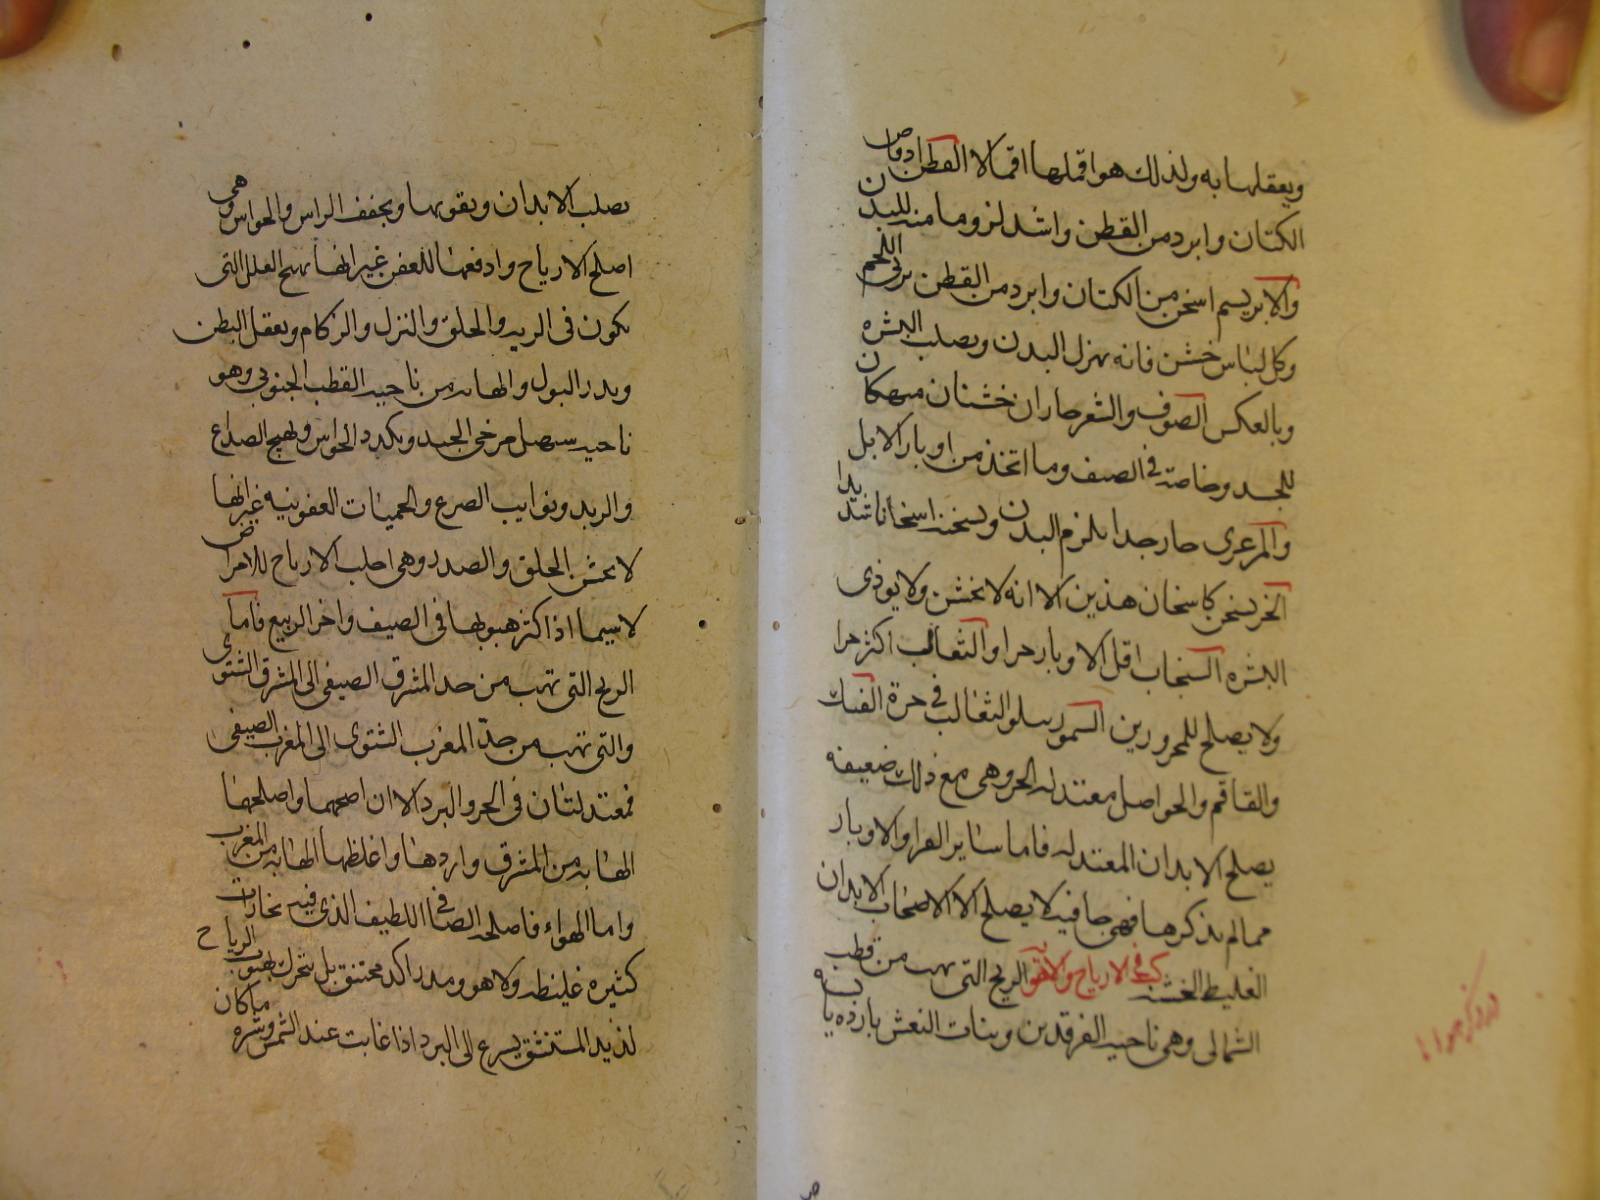 ويعقلها به ولذلك هو اقملها اقمالا القطن ادفا من
الكتان وابرد من القطن واشد لزوما منه للبدن
والابريسم اسخن من الكتان وابرد من القطن يربى اللحم
وكل لباس خشن فانه يهزل البدن ويصلب البشره
وبالعكس الصوف والشعر حاران خشنان منهكان
للجسد وخاصة فى الصيف وما اتخذ من اوبار الابل
والمرعزى حار جدا يلزم البدن ويسخنه اسخانا شديدا
الخز يسخن كاسخان هذين الا انه لا يخشن ولا يوذى
البشره السنجاب اقل الاوبار حرا والثعالب اكثر حرا
ولا يصلح للمحرورين السمور يتلو الثعالب فى حرة الفنك
والقاقم والحواصل معتدله الحر وهى مع ذلك ضعيفه
يصلح الابدان المعتدله فاما ساير الفرا والاوبار
مما لم نذكرها فهى جافيه لا يصلح الا لاصحاب الابدان
الغليظه الخشنه فى الارياح والاهويه الريح التى تهب من قطب
الشمالى وهى ناحيه الفرقدين وبنات النعش بارده يابسه
يصلب الابدان ويقويها ويجفف الراس والحواس وهى
اصلح الارياح وادفعها للعفن غير انها تهيج العلل التى
يكون فى الريه والحلق والنزل والزكام ويعقل البطن
ويدر البول والهابه من ناحيه القطب الجنوبى وهو
ناحيه سهيل مرخى الجسد ويكدر الحواس ويهيج الصداع
والربد ونوايب الصرع والحميات العفونيه غير انها
لا يخشن الحلق والصدر وهى اجلب الارياح للامراض
لا سيما اذا كثر هبوبها فى الصيف واخر الربيع فاما
الريح التى تهب من حد المشرق الصيفى الى المشرق الشتوى
والتى تهب من حد المغرب الشتوى الى المغرب الصيفى
فمعتدلتان فى الحر والبرد الا ان اصحهما واصلحهما
الهابه من المشرق واردهما واغلظهما الهابه من المغرب
واما الهواء فاصلحه الصافى اللطيف الذى فيه بخارات
كثيره غليظه ولا هو ومد راكد مختنق بل يتحرك بهبوب الرياح
لذيذ المستنشق يسرع الى البرد اذا غابت عنه الشمس وشره ما كان